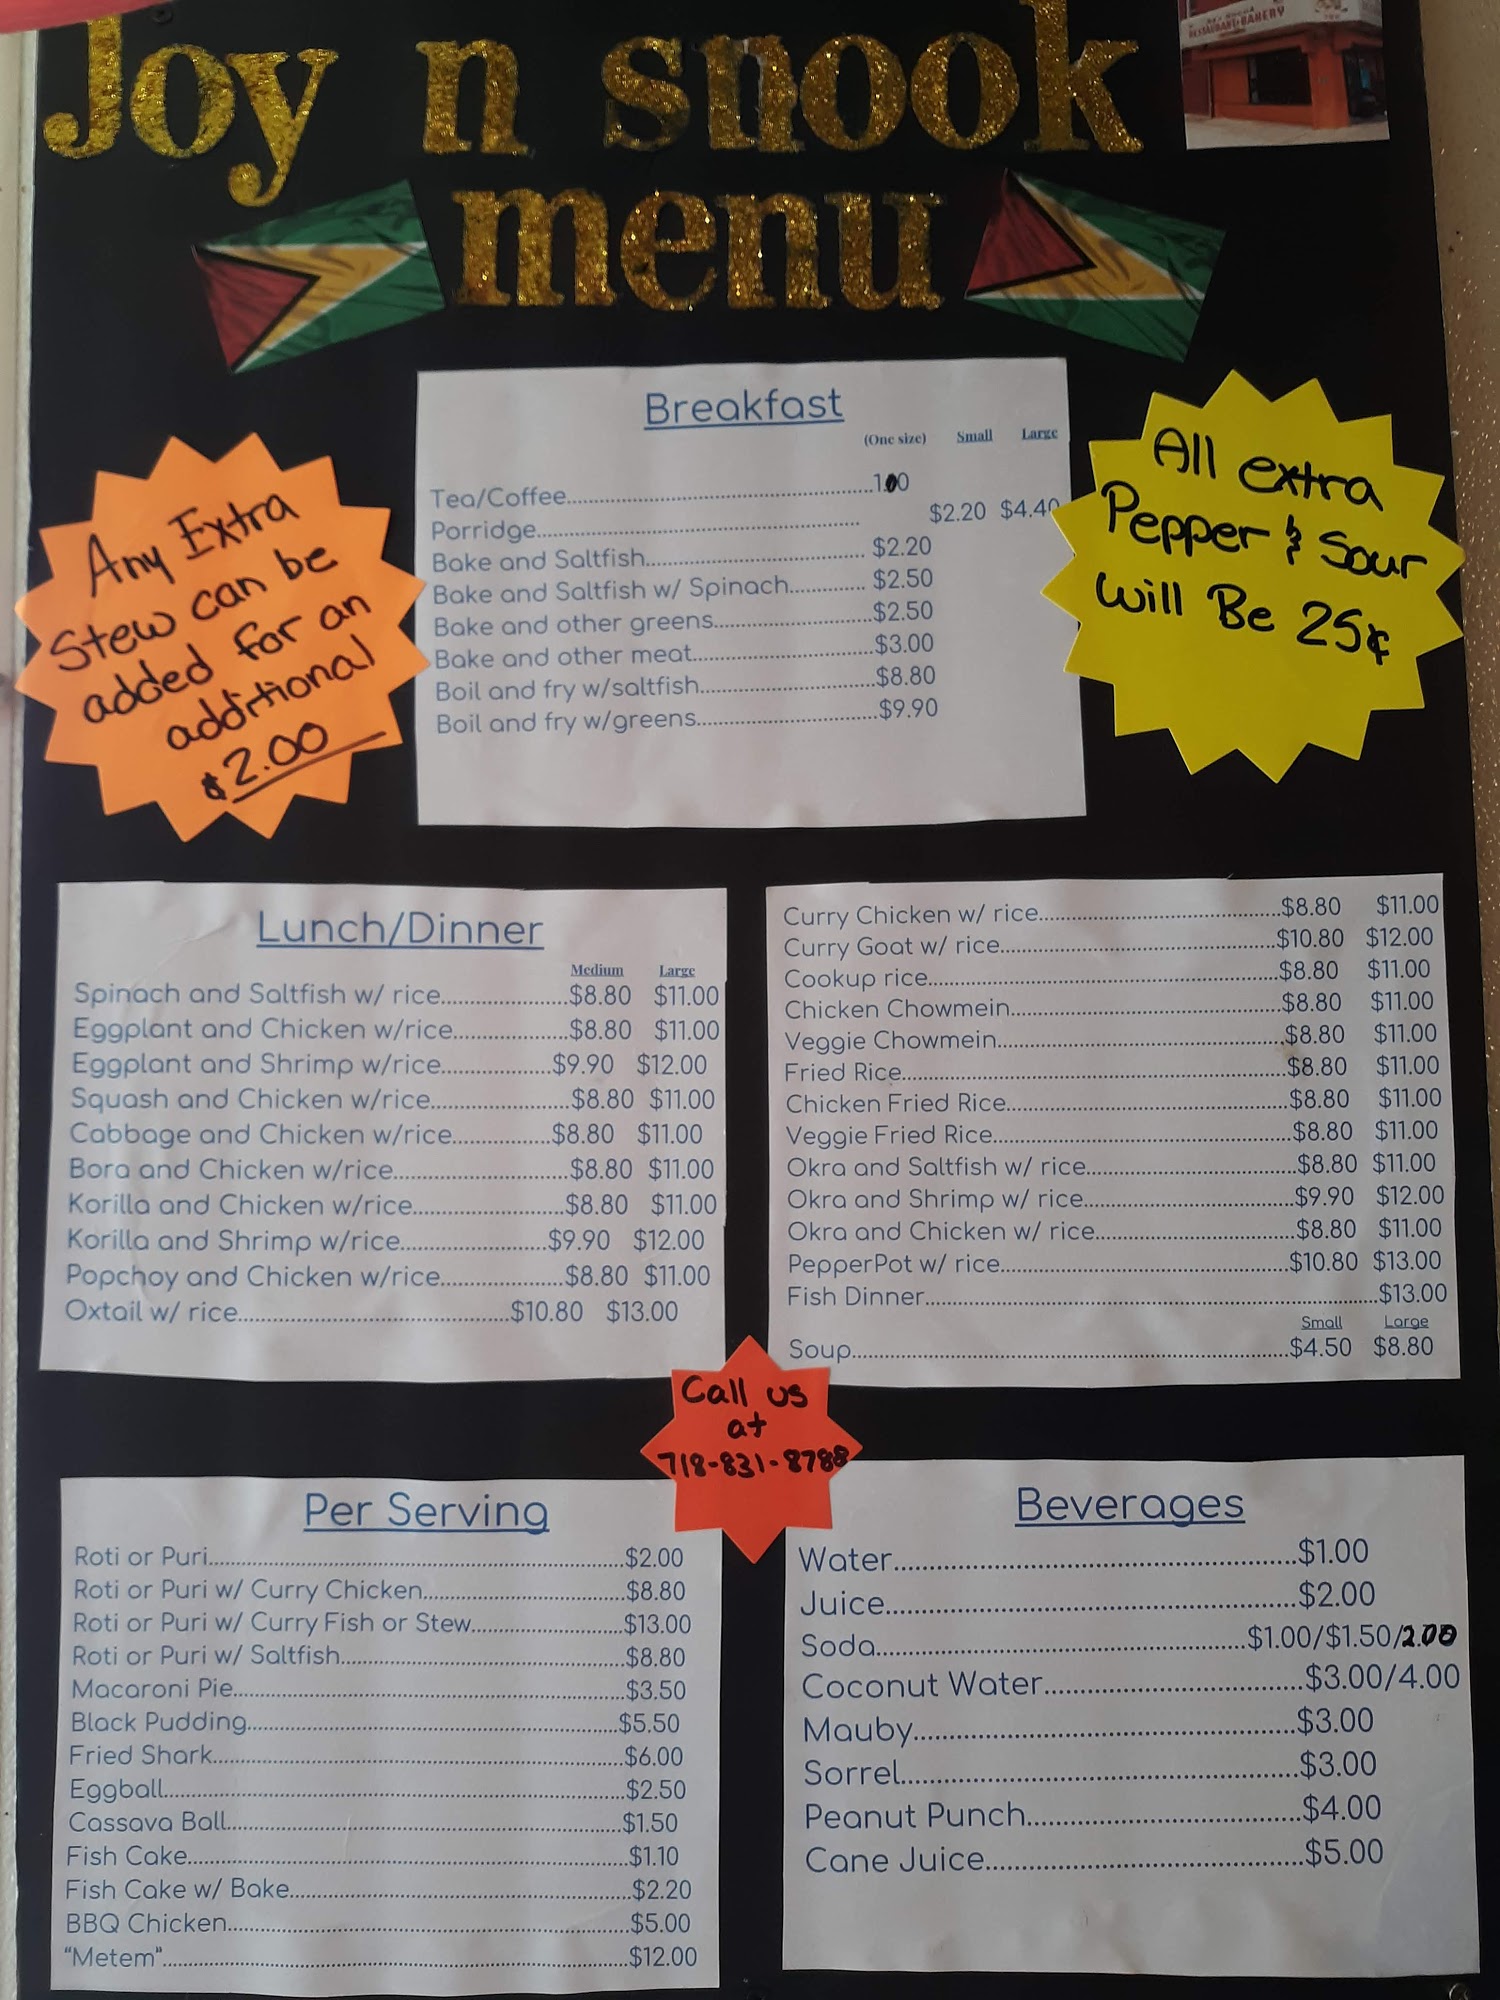 Joy n snook
menu
RESTAURANT & BAKERY
Breakfast
(One size) Small Large
Tea/Coffee..........1.00
Porridge.......... $2.20 $4.40
Bake and Saltfish.......... $2.20
Bake and Saltfish w/ Spinach.......... $2.50
Bake and other greens..........$2.50
Bake and other meat..........$3.00
Boil and fry w/saltfish..........$8.80
Boil and fry w/greens..........$9.90
Any Extra
Stew can be
added for an
additional
$2.00
All extra
Pepper & Sour
Will Be 25¢
Lunch/Dinner
Medium Large
Spinach and Saltfish w/ rice..........$8.80 $11.00
Eggplant and Chicken w/rice..........$8.80 $11.00
Eggplant and Shrimp w/rice..........$9.90 $12.00
Squash and Chicken w/rice..........$8.80 $11.00
Cabbage and Chicken w/rice..........$8.80 $11.00
Bora and Chicken w/rice..........$8.80 $11.00
Korilla and Chicken w/rice..........$8.80 $11.00
Korilla and Shrimp w/rice..........$9.90 $12.00
Popchoy and Chicken w/rice..........$8.80 $11.00
Oxtail w/ rice..........$10.80 $13.00
Curry Chicken w/ rice..........$8.80 $11.00
Curry Goat w/ rice..........$10.80 $12.00
Cookup rice..........$8.80 $11.00
Chicken Chowmein..........$8.80 $11.00
Veggie Chowmein..........$8.80 $11.00
Fried Rice..........$8.80 $11.00
Chicken Fried Rice..........$8.80 $11.00
Veggie Fried Rice..........$8.80 $11.00
Okra and Saltfish w/ rice..........$8.80 $11.00
Okra and Shrimp w/ rice..........$9.90 $12.00
Okra and Chicken w/ rice..........$8.80 $11.00
PepperPot w/ rice..........$10.80 $13.00
Fish Dinner..........$13.00
Small Large
Soup..........$4.50 $8.80
Call us
at
718-831-8788
Per Serving
Roti or Puri..........$2.00
Roti or Puri w/ Curry Chicken..........$8.80
Roti or Puri w/ Curry Fish or Stew..........$13.00
Roti or Puri w/ Saltfish..........$8.80
Macaroni Pie..........$3.50
Black Pudding..........$5.50
Fried Shark..........$6.00
Eggball..........$2.50
Cassava Ball..........$1.50
Fish Cake..........$1.10
Fish Cake w/ Bake..........$2.20
BBQ Chicken..........$5.00
"Metem"..........$12.00
Beverages
Water..........$1.00
Juice..........$2.00
Soda..........$1.00/$1.50/2.00
Coconut Water..........$3.00/4.00
Mauby..........$3.00
Sorrel..........$3.00
Peanut Punch..........$4.00
Cane Juice..........$5.00